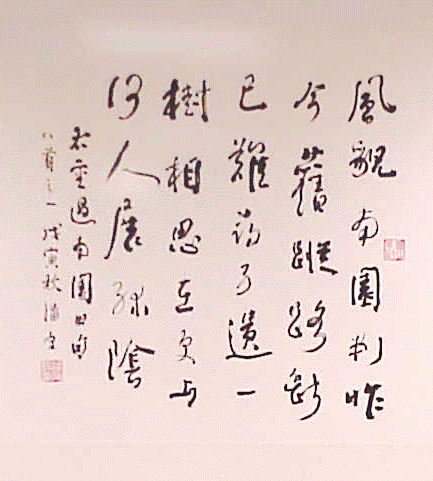 風貌南園判昨
今舊蹤路斷
已難尋遺一
樹相思在更与
何人展綠陰
右重過南園
八首之一戊寅秋